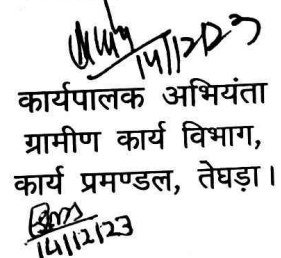 14/12/23
कार्यपालक अभियंता
ग्रामीण कार्य विभाग,
कार्य प्रमण्डल, तेघड़ा।
14/12/23